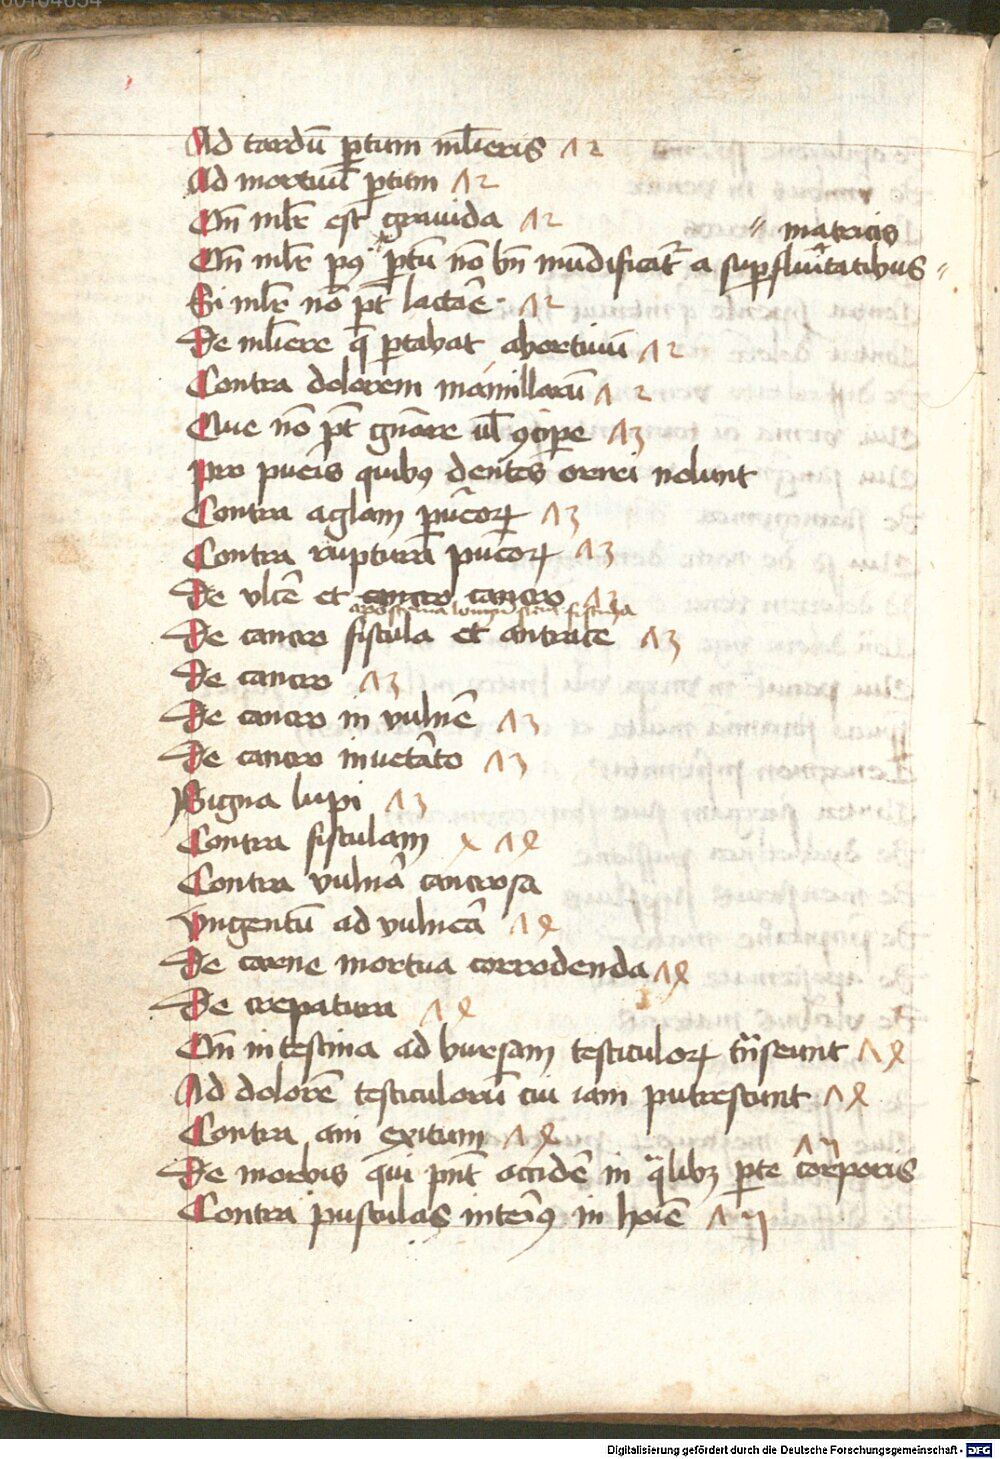 Ad tardū ꝑtum mľieris 12
Ad mortuū ꝑtum 12
Qn̄ mľr est gravida 12
〃 matricis
Qn̄ mľr pꝰ ꝑtū nō bn̄ mūdificat᷑ a suꝑfluitatibus 〃
Si mľr nō pt̄ lactaē · 12
De mľiere q̄ ꝑtabat abortiuū 12
Contra dolorem mamillarū 12
Que nō pt̄ gn̄are ul̄ ꝯciꝑe 13
Pro pueris quibꝰ dentes oriri nolunt
Contra aglam puerorꝝ 13
Contra rupturā puerorꝝ 13
De vlcē et cancro cancro 13
apostema fistula
De cancro fistula et antrace 13
De cancro 13
De cancro in vulnē 13
De cancro inuetāto 13
Signa lupi 13
Contra fistulam x 14
Contra vulnā cancrosa
Vngentū ad vulnēa 14
De carne mortua corrodenda 14
De crepatura 14
Qn̄ intestina ad bursam testiculorꝝ tn̄seunt 14
Ad dolorē testiculorū cui iam putrescunt 14
Contra ani exitum 14
De morbis qui pn̄t accidē in qͣlibꝫ ꝑte corporis 15
Contra pustulas interiꝰ in hoīe 15
Digitalisierung gefördert durch die Deutsche Forschungsgemeinschaft - DFG